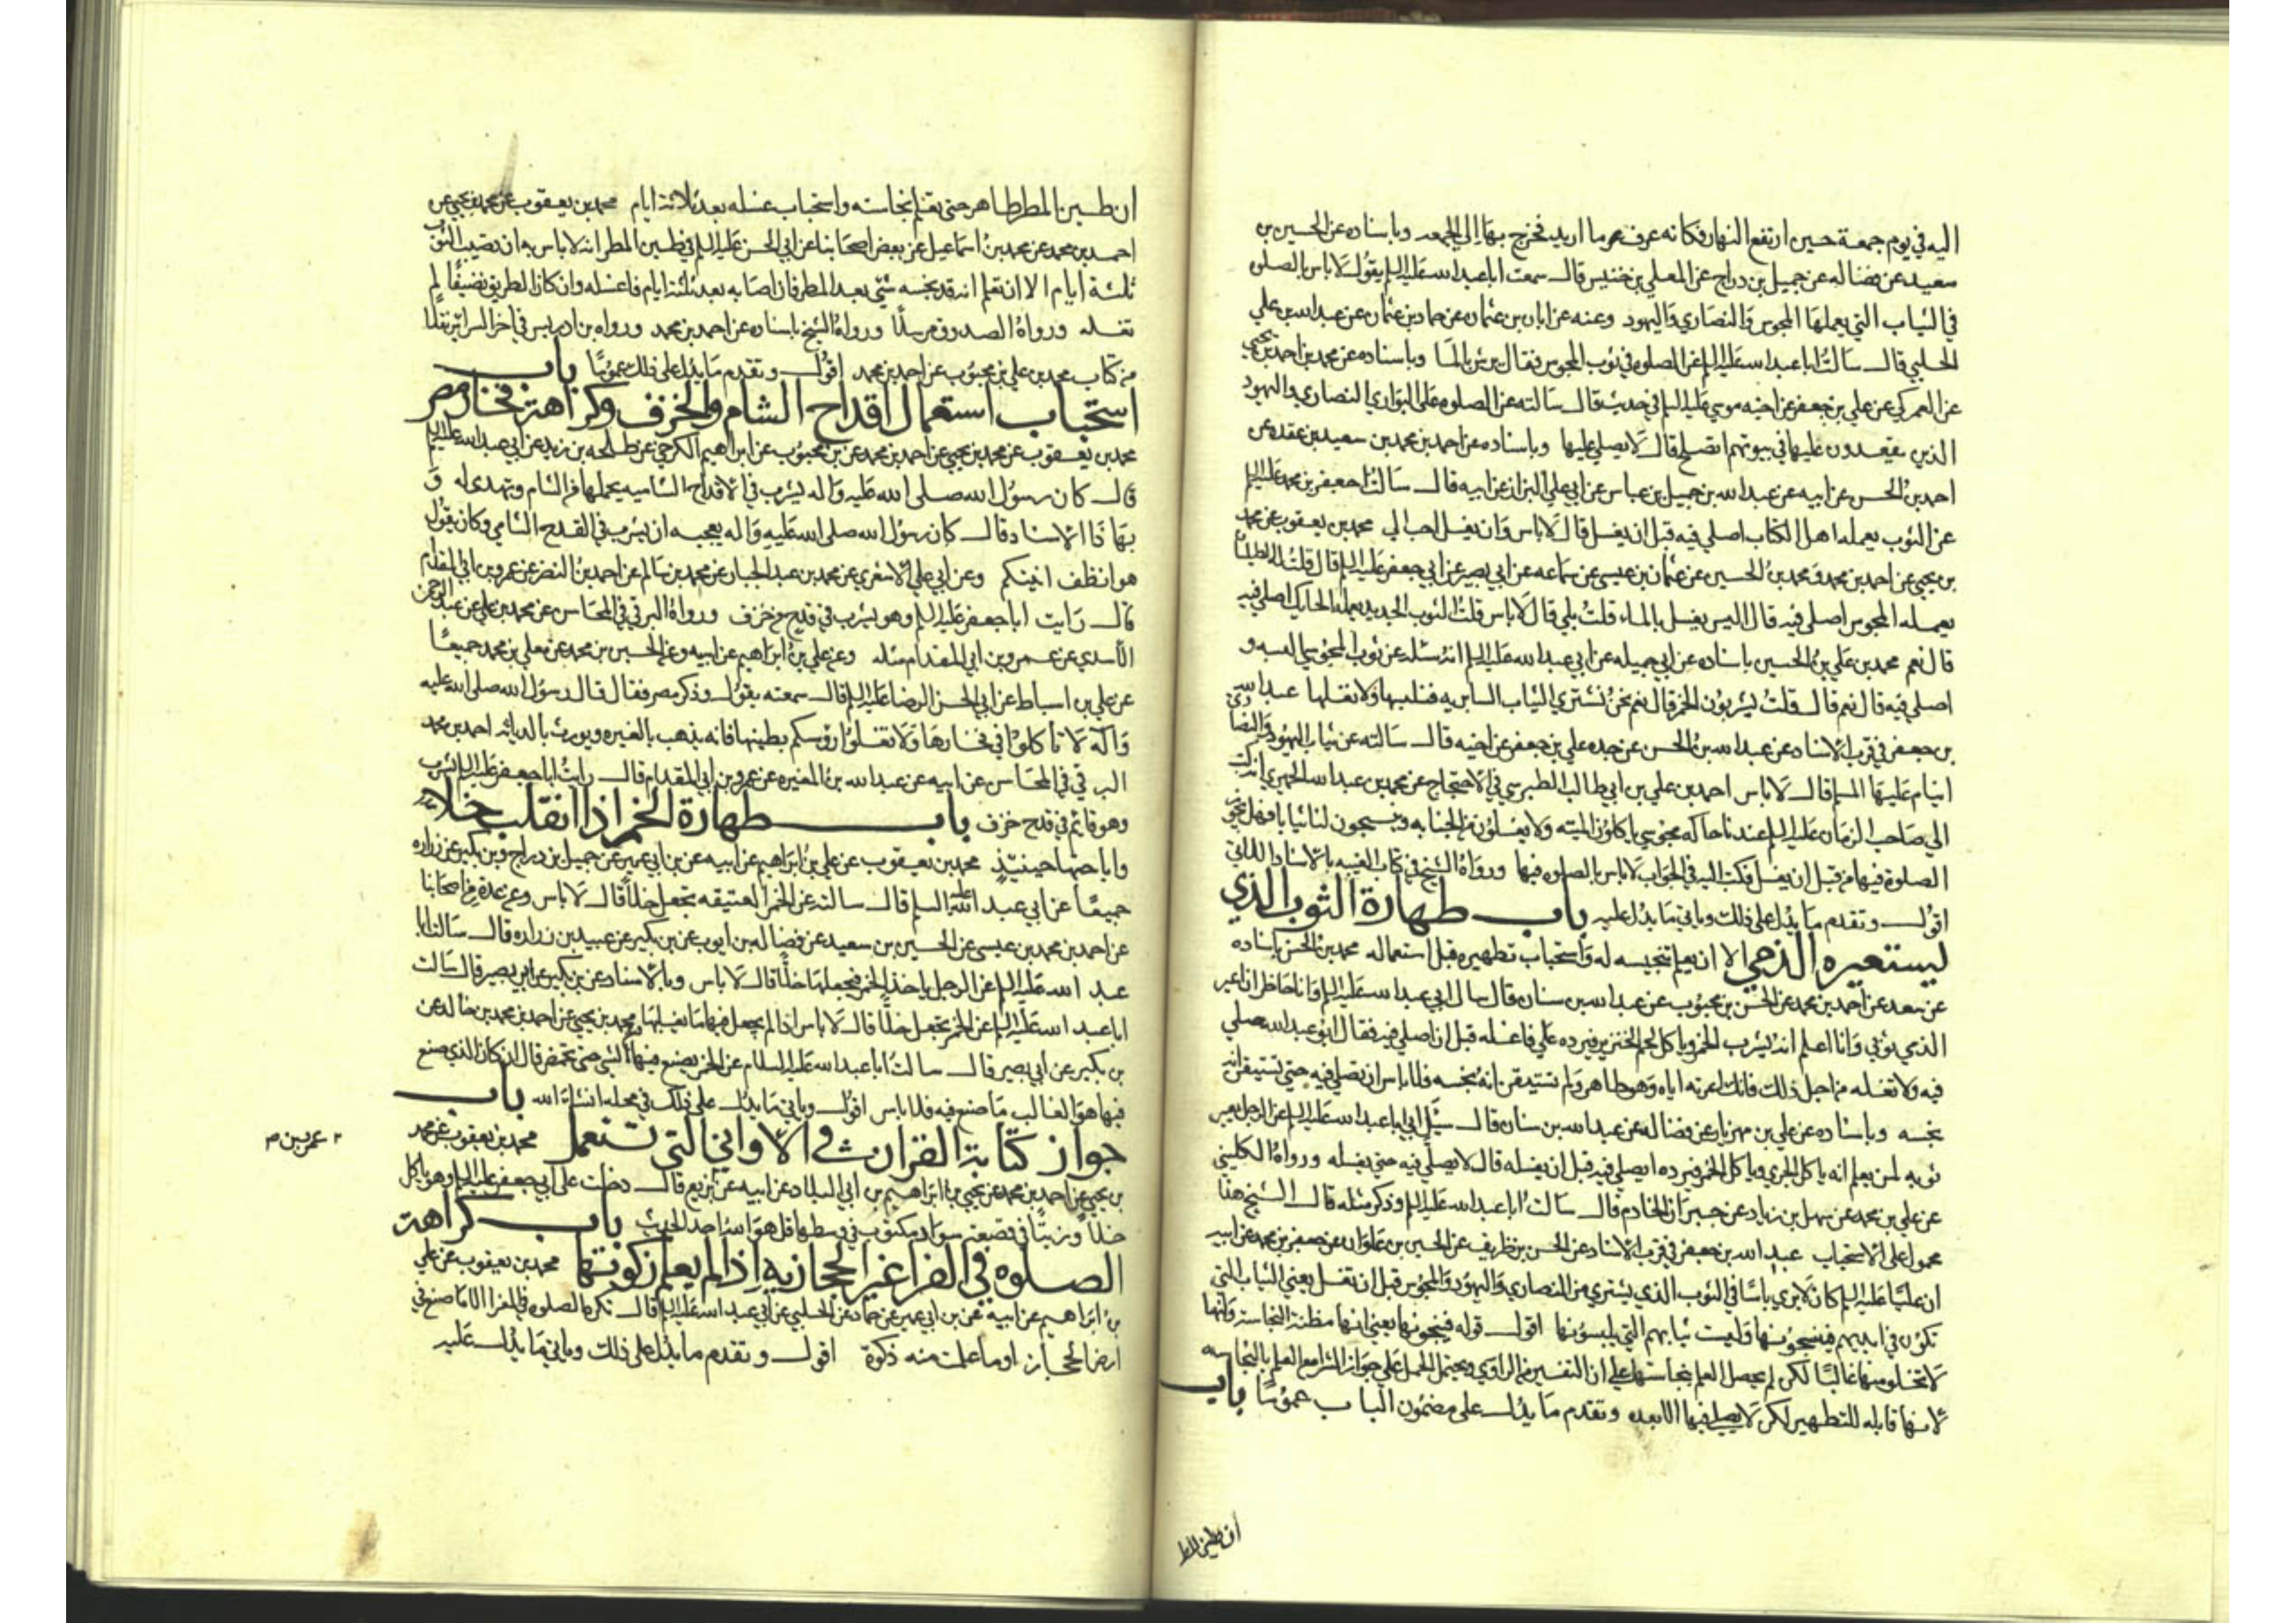 اليه في يوم جمعة حين ارتفع النهار فكانه عرف عر ما اريد فخرج بها الى الجمعه وباسناده عن الحسين بن
سعيد عن فضاله عن جميل بن دراج عن المعلي بن خنيس قال سمعت ابا عبد الله عليه السلم يقول لا باس بالصلوه
في الثياب التي يعملها المجوس والنصاري واليهود وعنه عن ابان بن عثمان عن حماد بن عثمان عن عبد الله بن علي
الحلبي قال سالت ابا عبد الله عليه السلم عن الصلوه في ثوب المجوس فقال يرش بالما وباسناده عن محمد بن احمد بن يحيي
عن العمركي عن علي بن جعفر عن اخيه موسي عليه السلم في حديث قال سالته عن الصلوه على البواري النصاري واليهود
الذين يقعدون عليها في بيوتهم اتصلح قال لا يصلي عليها وباسناده عن احمد بن محمد بن سعيد بن عقده عن
احمد بن الحسن عن ابيه عن عبد الله بن جميل بن عباس عن ابي علي البزاز عن ابيه قال سالت جعفر بن محمد عليه السلم
عن الثوب يعمله اهل الكتاب اصلي فيه قبل ان يغسل قال لا باس وان يغسل احب الي محمد بن يعقوب عن محمد
بن يحيي عن احمد بن محمد ومحمد بن الحسين عن عثمان بن عيسى عن سماعه عن ابي بصير عن ابي جعفر عليه السلم قال قلت له الطيلسان
يعمله المجوس اصلي فيه قال اليس يغسل بالماء قلت بلي قال لا باس قلت الثوب الجديد يعمله الحايك اصلي فيه
قال نعم محمد بن علي بن الحسين باسناده عن ابي جميله عن ابي عبد الله عليه السلم انه سئله عن ثوب المجوسي البسه و
اصلي فيه قال نعم قال قلت يشربون الخمر قال نعم نحن نشتري الثياب السابريه فنلبسها ولا نغسلها عبد الله
بن جعفر في قرب الاسناد عن عبد الله بن الحسن عن جده علي بن جعفر عن اخيه قال سالته عن ثياب اليهود والنصاري
اينام عليها المسلم قال لا باس احمد بن علي بن ابي طالب الطبرسي في الاحتجاج عن محمد بن عبد الله الحميري انه كتب
الي صاحب الزمان عليه السلم عندنا حاكه مجوسي ياكلون الميته ولا يغسلون من الجنابه وينسجون لنا ثيابا فهل تجوز
الصلوة فيها من قبل ان يغسل فكتب اليه في الجواب لا باس بالصلوه فيها ورواه الشيخ في كتاب الغيبه بالاسناد الاتي
اقول وتقدم ما يدل على ذلك وياتي ما يدل عليه باب طهارة الثوب الذي
يستعيره الذمي الا ان يعلم تنجيسه له واستحباب تطهيره قبل استعماله محمد بن الحسن باسناده
عن سعد عن احمد بن محمد عن الحسن بن محبوب عن عبد الله بن سنان قال سال ابي ابا عبد الله عليه السلم وانا حاضر اني اعير
الذمي ثوبي وانا اعلم انه يشرب الخمر وياكل لحم الخنزير فيرده علي فاغسله قبل ان اصلي فيه فقال ابو عبد الله صلي
فيه ولا تغسله من اجل ذلك فانك اعرته اياه وهو طاهر ولم تستيقن انه نجسه فلا باس ان تصلي فيه حتي تستيقن انه
نجسه وباسناده عن علي بن مهزيار عن فضاله عن عبد الله بن سنان قال سئل ابي ابا عبد الله عليه السلم عن الرجل يعير
ثوبه لمن يعلم انه ياكل الجري وياكل الخمر فيرده ايصلي فيه قبل ان يغسله قال لا يصلي فيه حتي يغسله ورواه الكليني
عن علي بن محمد عن سهل بن زياد عن خيران الخادم قال سالت ابا عبد الله عليه السلم وذكر مثله قال الشيخ هذا
محمول على الاستحباب عبد الله بن جعفر في قرب الاسناد عن الحسن بن ظريف عن الحسين بن علوان عن جعفر بن محمد عن ابيه
ان عليا عليه السلم كان لا يري باسا في الثوب الذي يشتري من النصاري واليهود والمجوس قبل ان تغسل يعني الثياب التي
تكون في ايديهم فينجسونها وليست ثيابهم التي يلبسونها اقول قوله فينجسونها يعني انها مظنة النجاسة وانها
لا تخلو منها غالبا لكن لم يحصل العلم بنجاستها علي ان التفسير من الراوي ويحتمل الحمل علي جواز الشرا مع العلم بالنجاسه
لانها قابله للتطهير لكن لا يصلي فيها الا بعده وتقدم ما يدل على مضمون الباب عموما باب
ان طين المطر
ان طين المطر طاهر حتي تعلم نجاسته واستحباب غسله بعد ثلاثة ايام محمد بن يعقوب عن محمد بن يحيي عن
احمد بن محمد عن محمد بن اسماعيل عن بعض اصحابنا عن ابي الحسن عليه السلم في طين المطر انه لا باس به ان يصيب الثوب
ثلثة ايام الا ان تعلم انه قد نجسه شي بعد المطر فان اصابه بعد ثلثة ايام فاغسله وان كان الطريق نضيفا لم
تغسله ورواه الصدوق مرسلا ورواه الشيخ باسناده عن احمد بن محمد ورواه بن ادريس في اخر السرائر نقلا
من كتاب محمد بن علي بن محبوب عن احمد بن محمد اقول وتقدم ما يدل على ذلك عموما باب
استحباب استعمال اقداح الشام والخزف وكراهة فخار مصر
محمد بن يعقوب عن محمد بن يحيي عن احمد بن محمد عن بن محبوب عن ابراهيم الكرخي عن طلحه بن زيد عن ابي عبد الله عليه السلم
قال كان رسول الله صلى الله عليه واله يشرب في الاقداح الشاميه يحملها من الشام وتهدى له و
بهاذا الاسناد قال كان رسول الله صلى الله عليه واله يعجبه ان يشرب في القدح الشامي وكان يقول
هو انظف انيتكم وعن ابي علي الاشعري عن محمد بن عبد الجبار عن محمد بن سالم عن احمد بن النضر عن عمرو بن ابي المقدام
قال رايت ابا جعفر عليه السلم وهو يشرب في قدح من خزف ورواه البرقي في المحاسن عن محمد بن علي عن عبد الرحمن
الاسدي عن عمرو بن ابي المقدام مثله وعن علي بن ابراهيم عن ابيه وعن الحسين بن محمد عن معلي بن محمد جميعا
عن علي بن اسباط عن ابي الحسن الرضا عليه السلم قال سمعته يقول وذكر مصر فقال قال رسول الله صلى الله عليه
واله لا تاكلوا في فخارها ولا تغسلوا رؤسكم بطينها فانه يذهب بالغيره ويورث بالدياثه احمد بن محمد
البرقي في المحاسن عن ابيه عن عبد الله بن المغيره عن عمرو بن ابي المقدام قال رايت ابا جعفر عليه السلم يشرب
وهو قائم في قدح خزف باب طهارة الخمر اذا انقلب خلا
واباحتها حينئذ محمد بن يعقوب عن علي بن ابراهيم عن ابيه عن بن ابي عمير عن جميل بن دراج وبن بكير عن زراره
جميعا عن ابي عبد الله عليه السلم قال سالته عن الخمر العتيقه تجعل خلا قال لا باس وعن عدة من اصحابنا
عن احمد بن محمد بن عيسي عن الحسين بن سعيد عن فضاله بن ايوب عن بن بكير عن عبيد بن زراره قال سالت ابا
عبد الله عليه السلم عن الرجل ياخذ الخمر فيجعلها خلا قال لا باس وبالاسناد عن بن بكير عن ابي بصير قال سالت
ابا عبد الله عليه السلم عن الخمر تجعل خلا قال لا باس اذا لم يجعل فيها ما يغلبها محمد بن يحيي عن احمد بن محمد بن خالد عن
بن بكير عن ابي بصير قال سالت ابا عبد الله عليه السلام عن الخمر يصنع فيها الشي حتي تحمض قال ان كان الذي صنع
فيها هو الغالب ما صنع فيه فلا باس اقول وياتي ما يدل على ذلك في محله انشاء الله باب
جواز كتابة القران في الاواني التي تستعمل محمد بن يعقوب عن محمد
بن يحيي عن احمد بن محمد عن يحيي بن ابراهيم بن ابي البلاد عن ابيه عن بزيع قال دخلت على ابي جعفر عليه السلم وهو ياكل
خلا وزيتا في قصعة سوداء مكتوب في وسطها قل هو الله احد الحديث باب كراهة
الصلوه في الفرا غير الحجازيه اذا لم يعلم زكوتها محمد بن يعقوب عن علي
بن ابراهيم عن ابيه عن بن ابي عمير عن حماد عن الحلبي عن ابي عبد الله عليه السلم قال تكره الصلوه في الفرا الا ما صنع في
ارض الحجاز او ما علمت منه ذكوة اقول وتقدم ما يدل على ذلك وياتي ما يدل عليه
عمر بن م